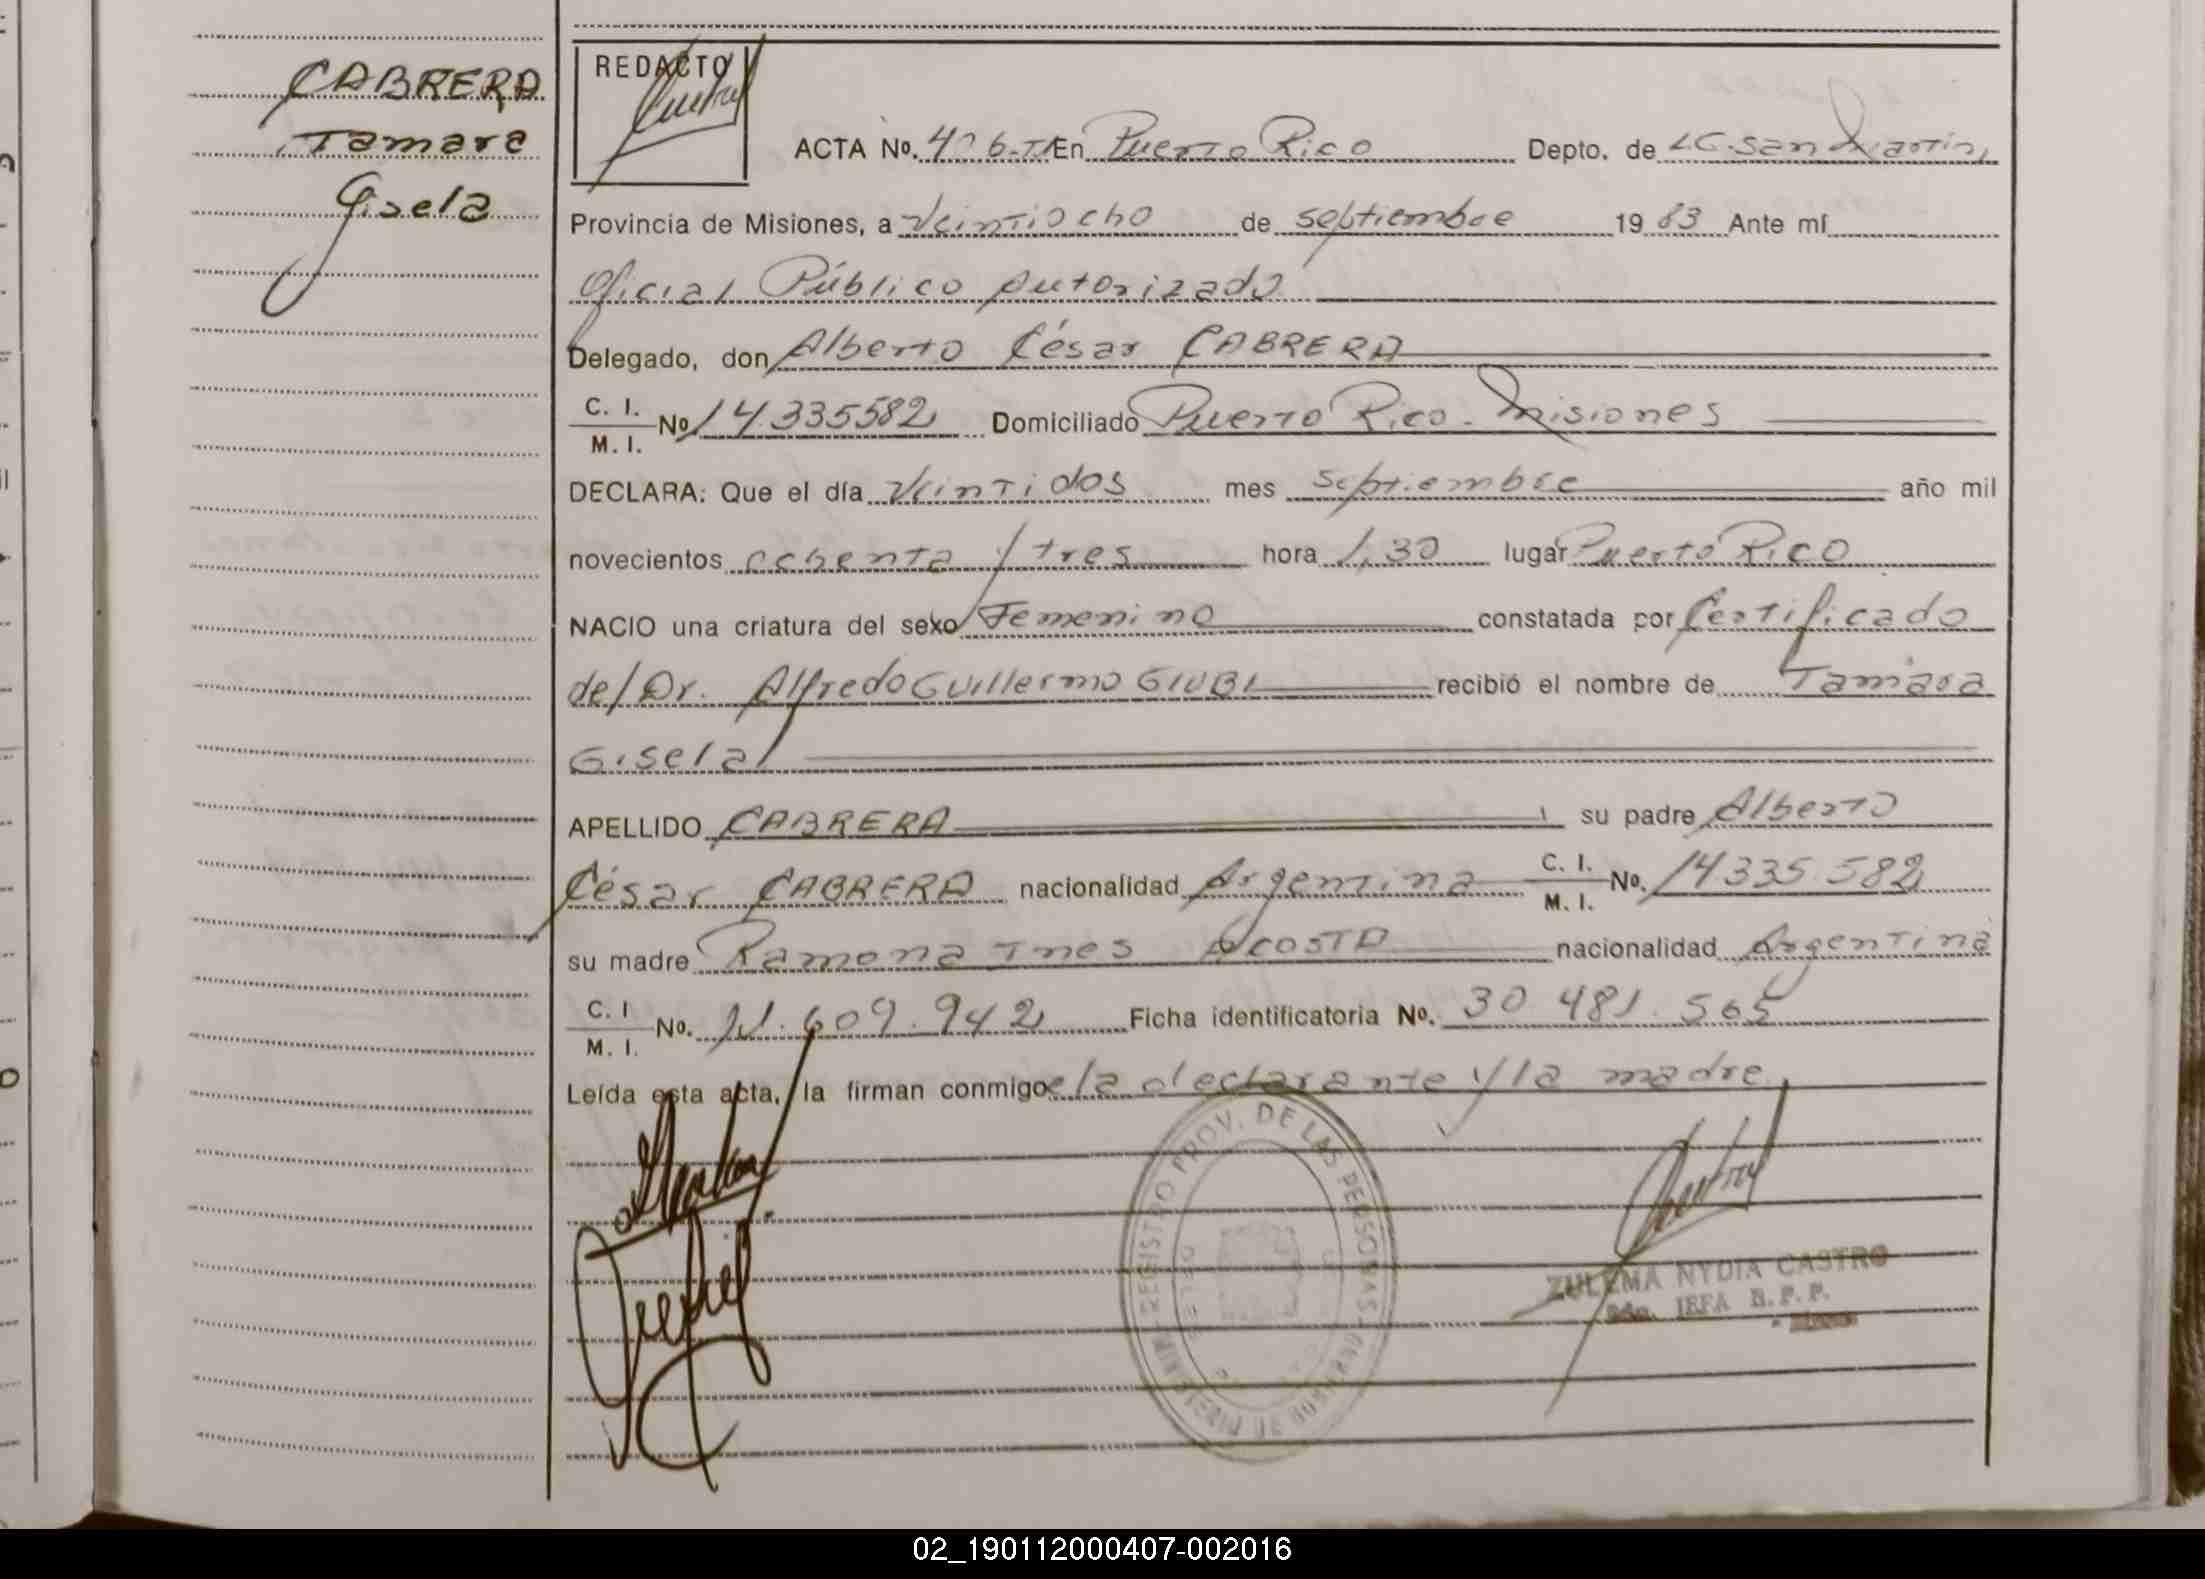 CABRERA
Tamara
Gisela
REDACTO
ACTA No. 406-TI En Puerto Rico Depto. de L.G. San Martin,
Provincia de Misiones, a Veintiocho de septiembre 1983 Ante mí
Oficial Público Autorizado
Delegado, don Alberto César CABRERA
C. I.
M. I. No 14.335582 Domiciliado Puerto Rico - Misiones
DECLARA: Que el día Veintidos mes septiembre año mil
novecientos ochenta y tres hora 1,30 lugar Puerto Rico
NACIO una criatura del sexo Femenino constatada por Certificado
del Dr. Alfredo Guillermo GIUBI recibió el nombre de Tamara
Gisela
APELLIDO CABRERA su padre Alberto
César CABRERA nacionalidad Argentina C. I. M. I. No. 14335.582
su madre Ramona Ines ACOSTA nacionalidad Argentina
C. I M. I. No. 11.609.942 Ficha identificatoria No. 30 481.565
Leída esta acta, la firman conmigo ela declarante y la madre
REGISTRO PROV. DE LAS PERSONAS
MINISTERIO DE GOBIERNO
ZULEMA NYDIA CASTRO
JEFA
02_190112000407-002016